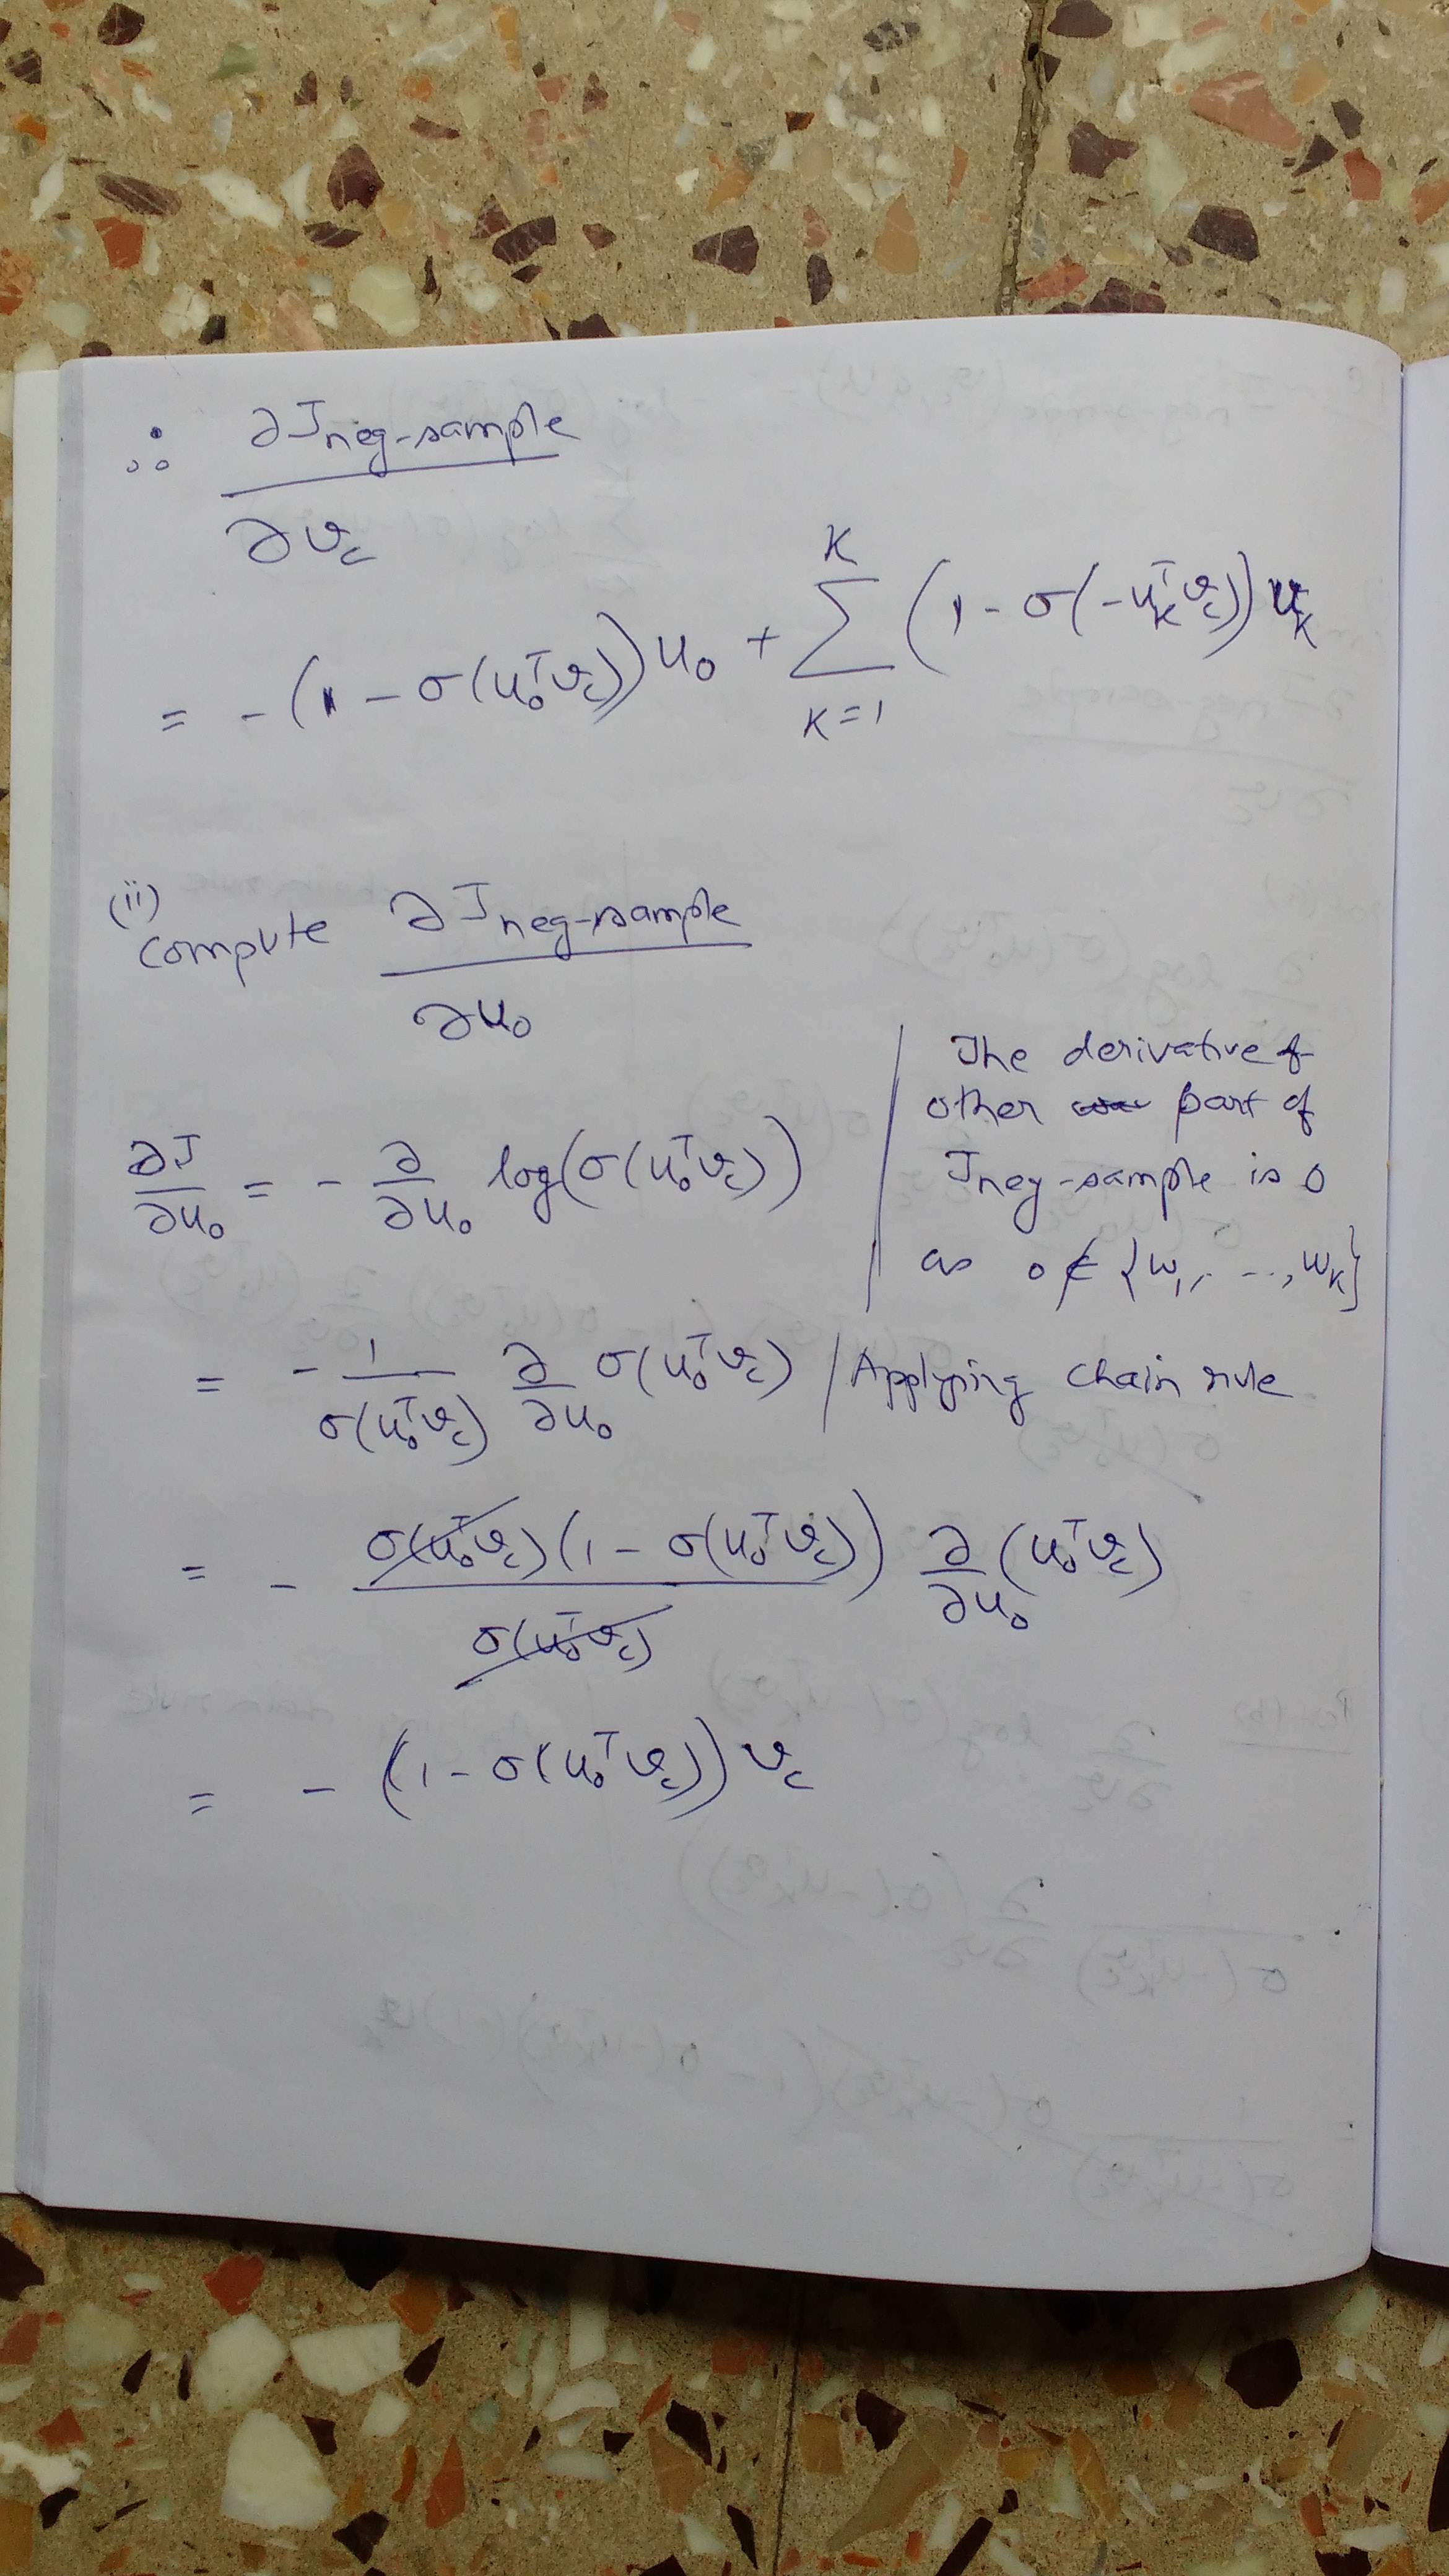 ∴ ∂J_neg-sample / ∂v_c
= - (1 - σ(u_o^T v_c)) u_o + ∑_{K=1}^{K} (1 - σ(-u_K^T v_c)) u_K
(ii) compute ∂J_neg-sample / ∂u_o
∂J/∂u_o = - ∂/∂u_o log(σ(u_o^T v_c))
The derivative of
other part of
J_neg-sample is 0
as o ∉ {w_1, ..., w_K}
= - 1/σ(u_o^T v_c) ∂/∂u_o σ(u_o^T v_c) / Applying chain rule
= - σ(u_o^T v_c)(1 - σ(u_o^T v_c)) / σ(u_o^T v_c) ∂/∂u_o (u_o^T v_c)
= - (1 - σ(u_o^T v_c)) v_c